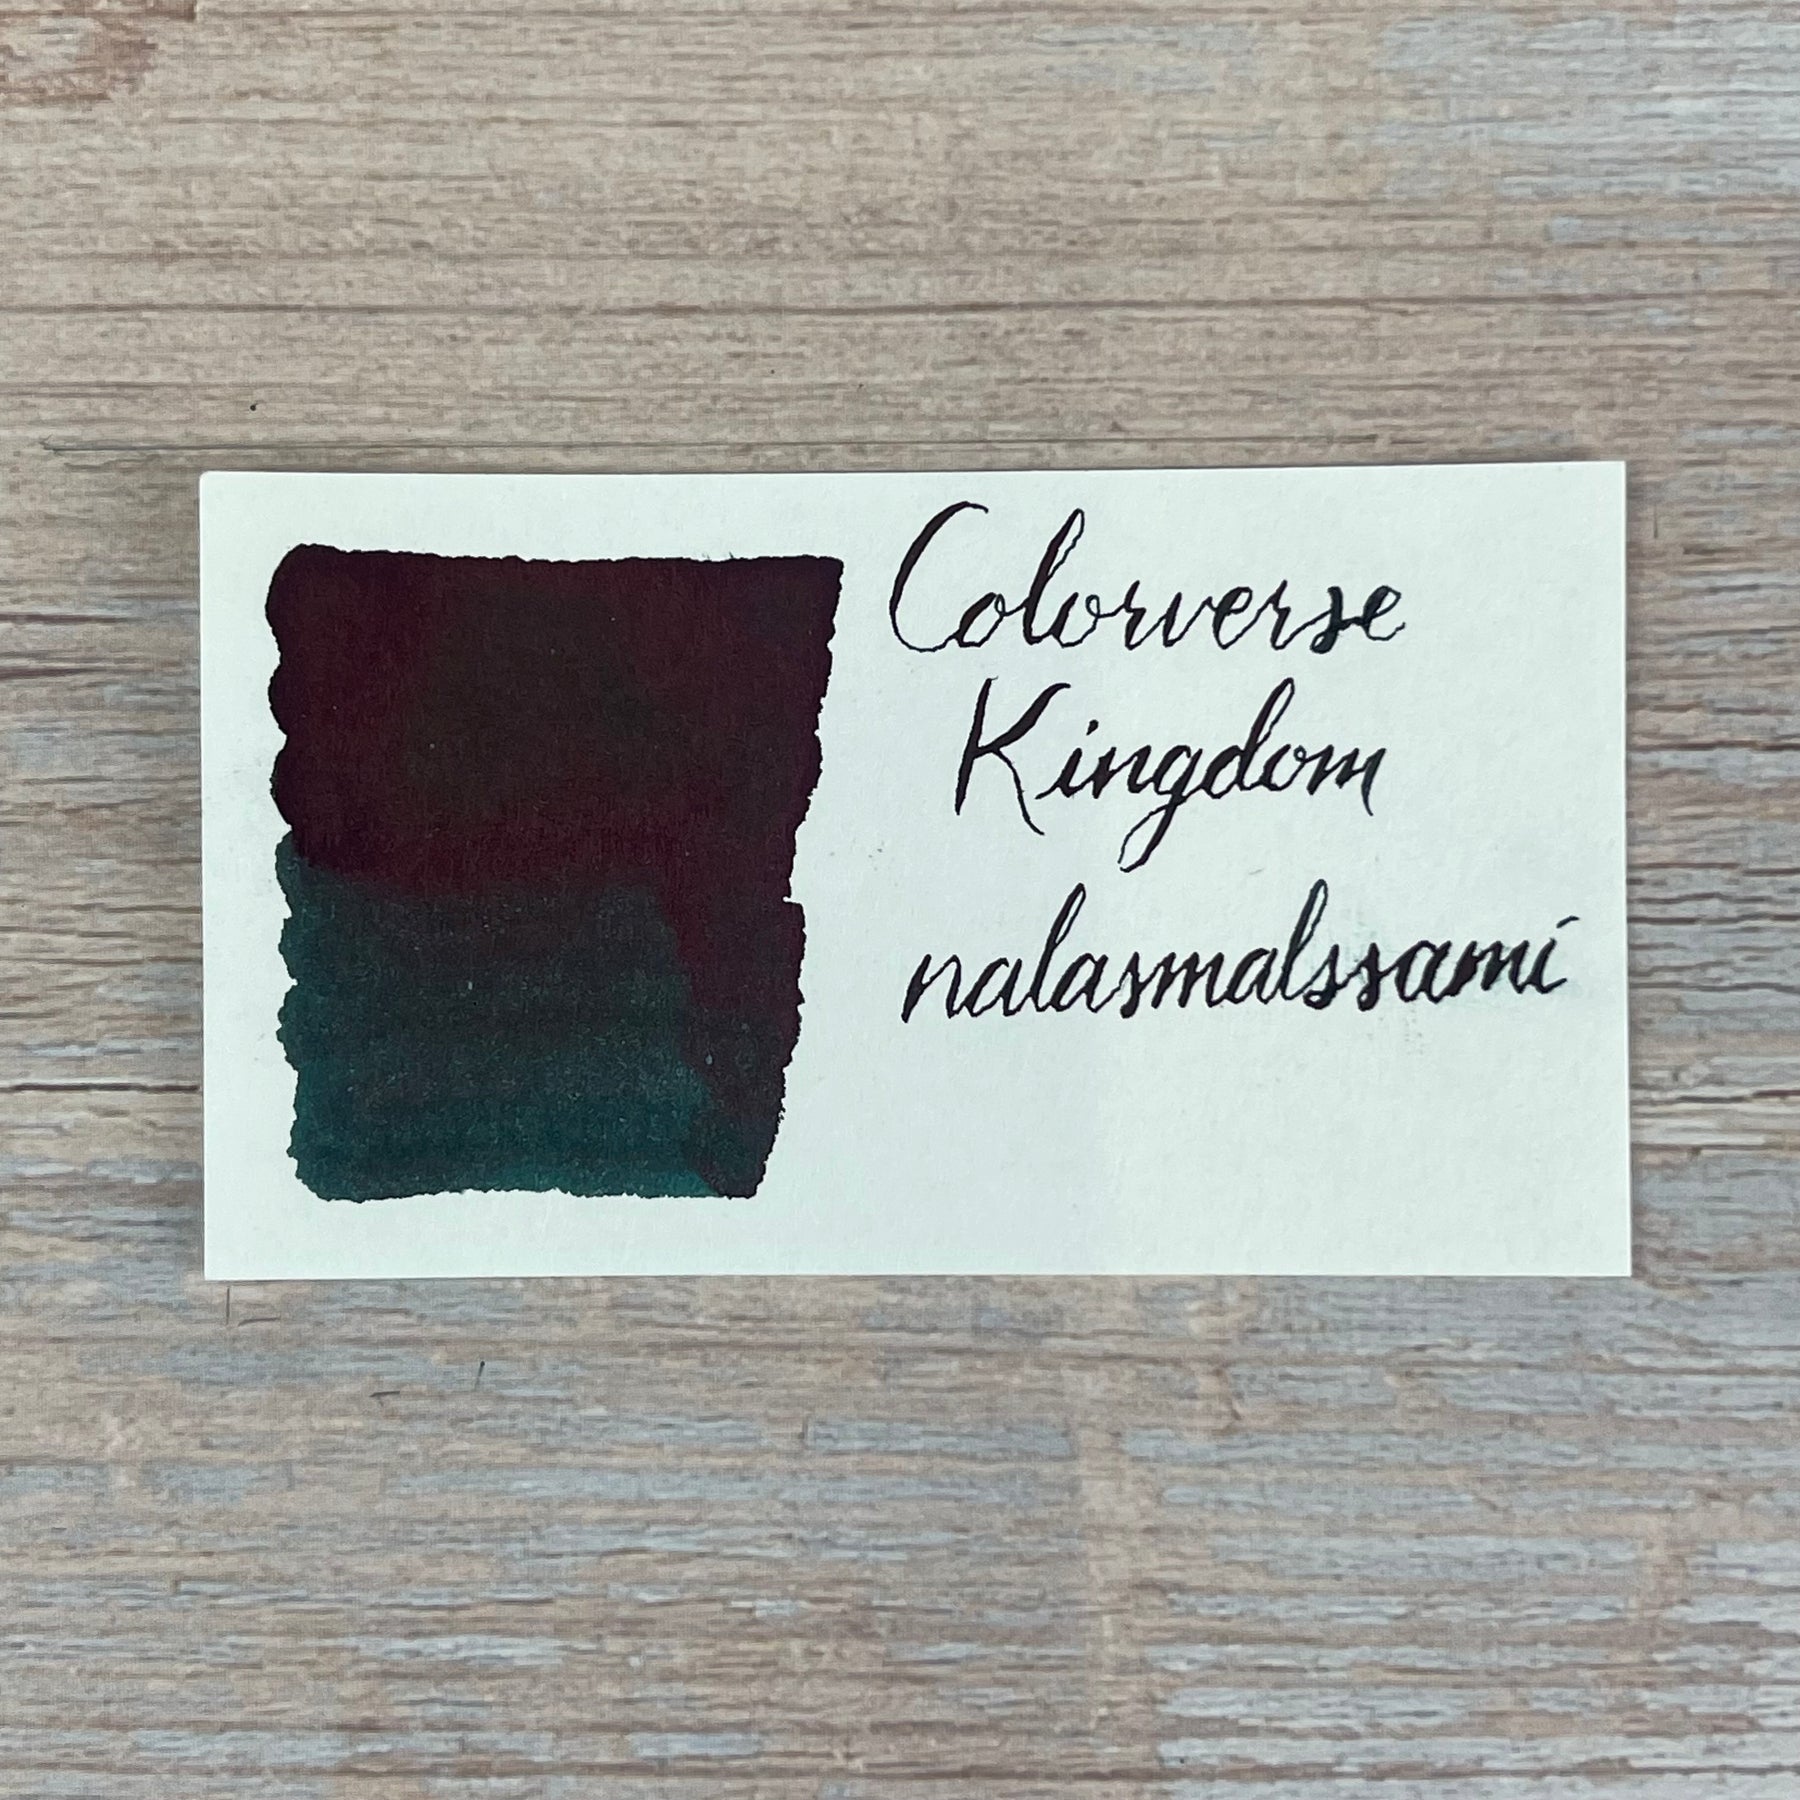 Colorverse
Kingdom
nalasmalssami